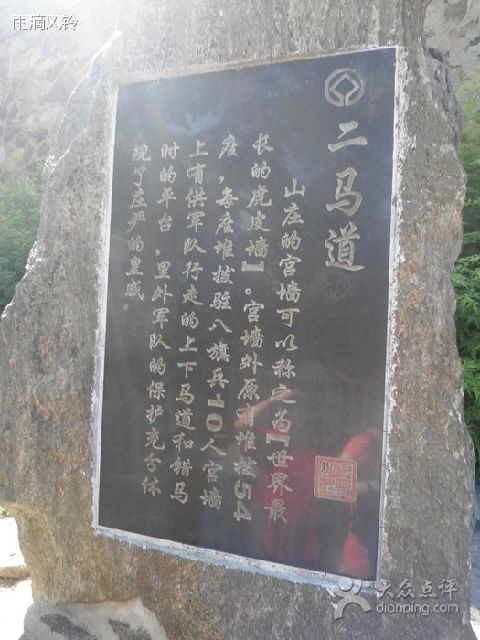 雨滴风铃
二马道
山庄的宫墙可以称之为『世界最
长的虎皮墙』。宫墙外原有堆拨54
座，每座堆拨驻八旗兵10人宫墙
上有供军队行走的上下马道和错马
时的平台，里外军队的保护充分体
现了庄严的皇威。
大众点评
dianping.com